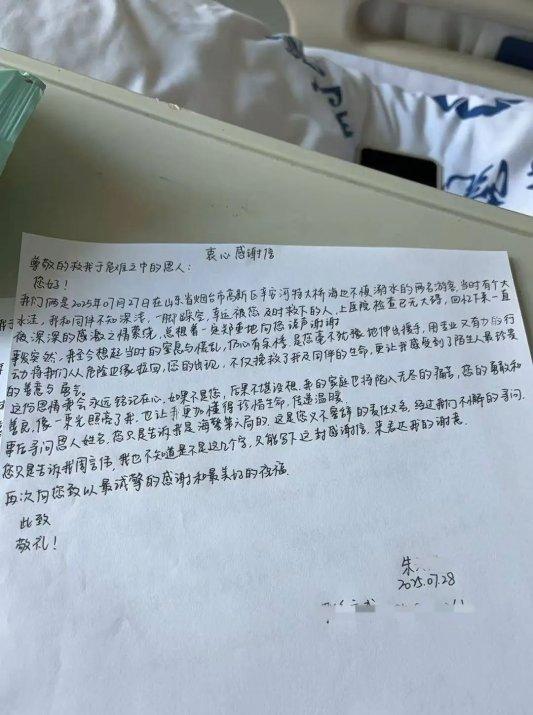 衷心感谢信
尊敬的救我于危难之中的恩人：
您好！
我们俩是2025年07月27日在山东省烟台市高新区辛安河特大桥海也不慎溺水的两名游客，当时有个大
水洼，我和同伴不知深浅，一脚踩空，幸运被您及时救下的人，上医院检查已无大碍，回忆下来一直
被深深的感激之情萦绕，总想着一定郑重地向您诸声谢谢
事发突然，我至今想起当时的窒息与慌乱，仍心有余悸，是您毫不犹豫地伸出援手，用专业又有力的行
动将我们从危险边缘拉回，您的出现，不仅挽救了我及同伴的生命，更让我感受到了陌生人最珍贵
的善意与勇气。
这份恩情我会永远铭记在心，如果不是您，后果不堪设想，我的家庭也将陷入无尽的痛苦，您的勇敢和
善良，像一束光照亮了我，也让我更加懂得珍惜生命，传递温暖。
要在寻问恩人姓名，您只是告诉我是海警第六局的，这是您义不容辞的责任义务，经过我们不懈的寻问，
您只是告诉我周言伟，我也不知道是不是这几个字，只能写下这封感谢信，来表达我的谢意。
再次向您致以最诚挚的感谢和最美好的祝福。
此致
敬礼！
朱
2025.07.28